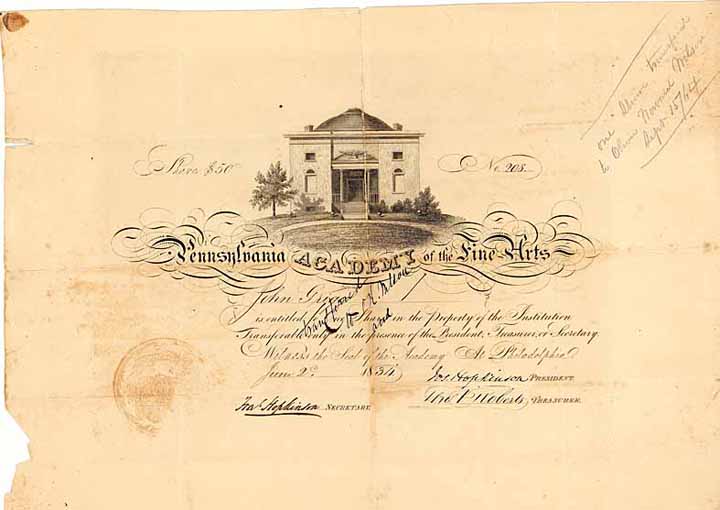 one share transferred
to Oliver Nelson
Sept 15/64
Share $50
No. 208
Pennsylvania ACADEMY of the Fine Arts
John
is entitled to Share in the Property of the Institution
Transferable only in the presence of the President, Treasurer, or Secretary.
Witness the Seal of the Academy At Philadelphia
June 2d 1834
transferred
Nelson
and
Jos Hopkinson PRESIDENT.
Fras Hopkinson SECRETARY.
Roberts, TREASURER.